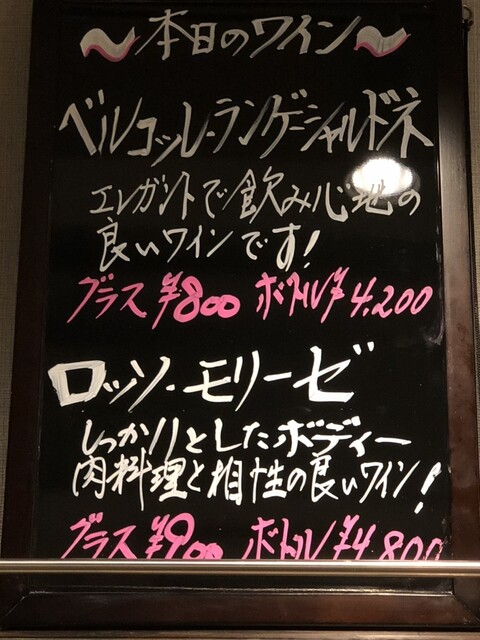 ～本日のワイン～
ベルコッレ・ランゲ・シャルドネ
エレガントで飲み心地の
良いワインです!
グラス ¥800 ボトル¥4,200
ロッソ・モリーゼ
しっかりとしたボディー
肉料理と相性の良いワイン!
グラス ¥900 ボトル¥4,800